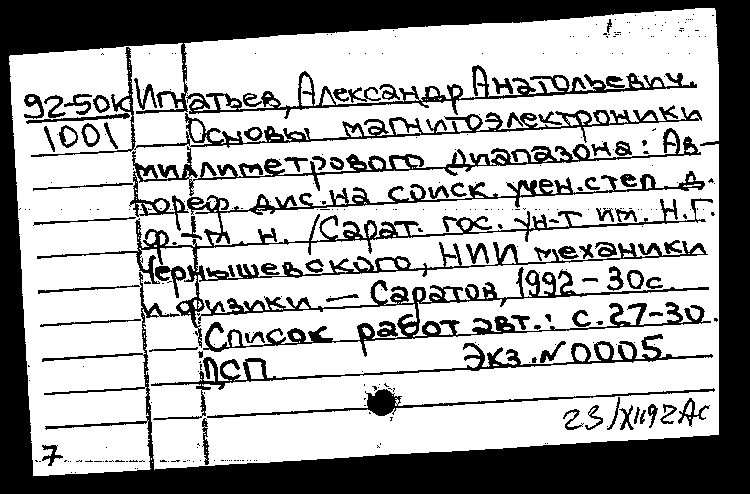 92-50к Игнатьев, Александр Анатольевич.
1001 Основы магнитоэлектроники
миллиметрового диапазона: Ав-
тореф. дис. на соиск. учен. степ. д.
ф.-м. н. /Сарат. гос. ун-т им. Н.Г.
Чернышевского, НИИ механики
и физики. — Саратов, 1992 - 30с.
Список работ авт.: с. 27-30.
ДСП Экз. N 0005.
23/XII92 Ас
7